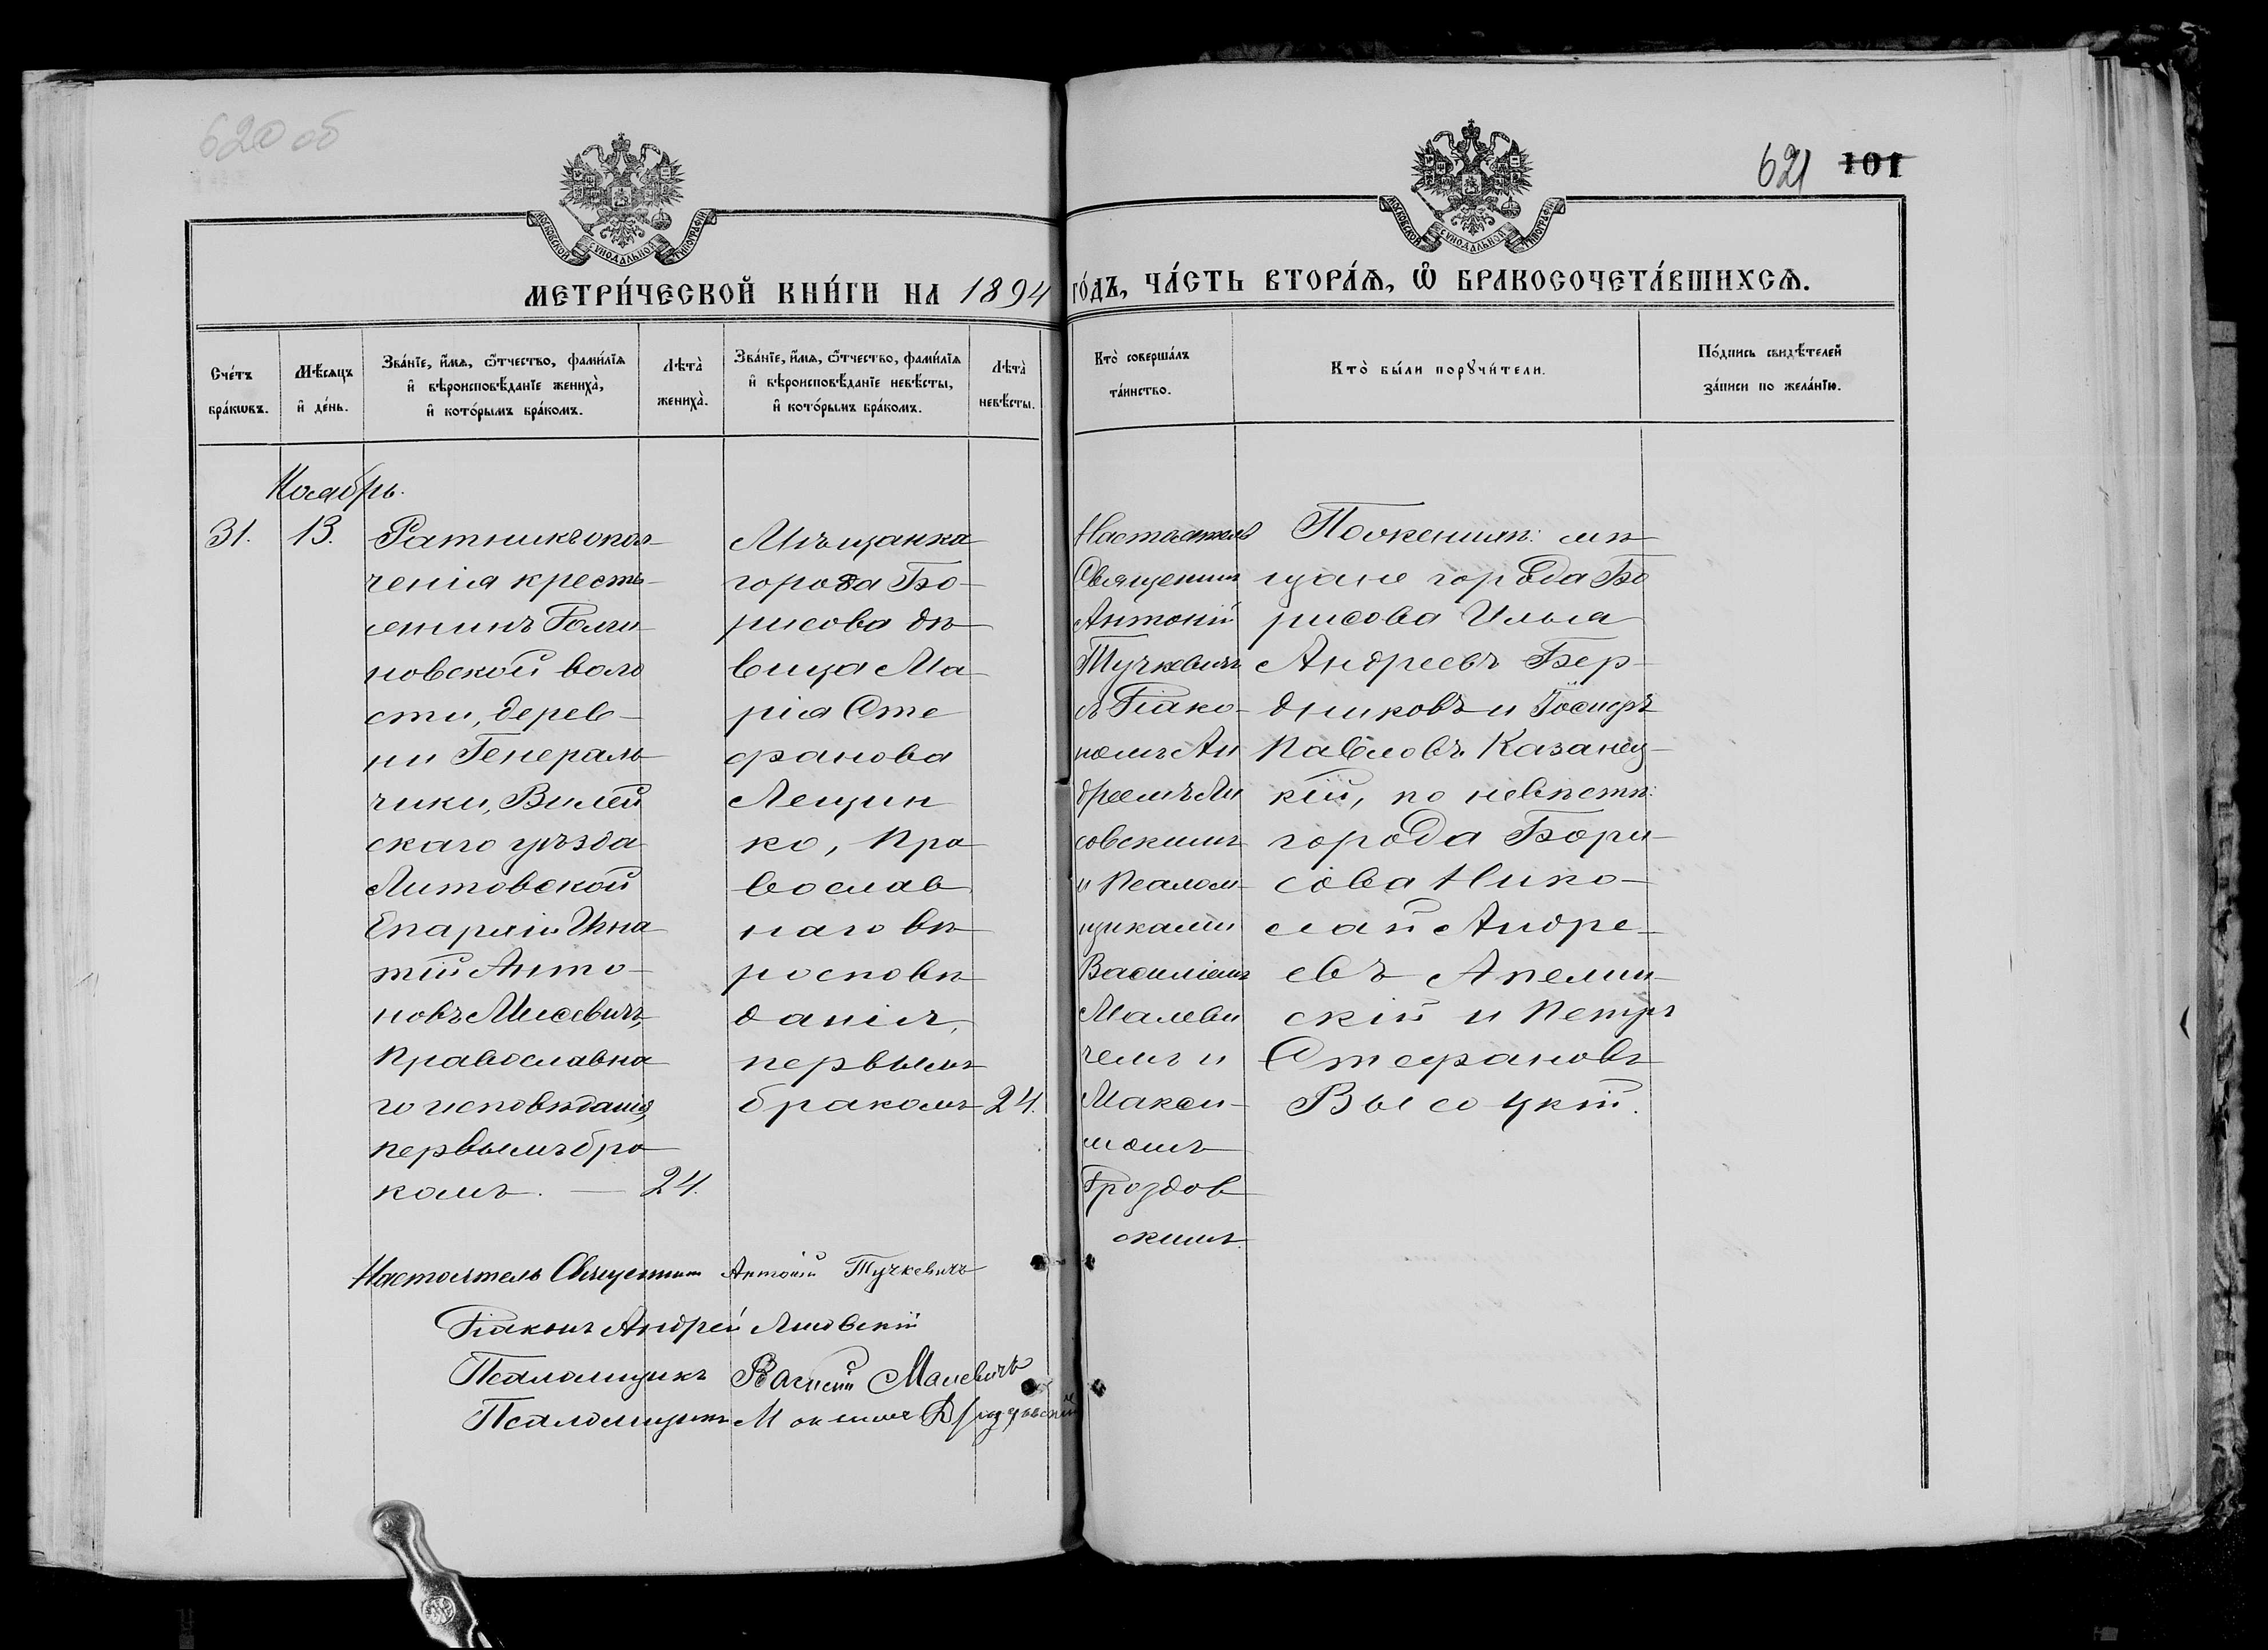 620 об
621 101
МОСКОВСКОЙ СѴНОДАЛЬНОЙ ТИПОГРАФІИ
МОСКОВСКОЙ СѴНОДАЛЬНОЙ ТИПОГРАФІИ
МЕТРИ́ЧЕСКОЙ КНИ́ГИ НА 1894 ГО́ДЪ, ЧА́СТЬ ВТОРА́Ѧ, Ѡ҆ БРАКОСОЧЕТА́ВШИХСѦ.
Сче́тъ
бра́кѡвъ.
Мѣ́сяцъ
и҆ де́нь.
Зва́нїе, и҆́мѧ, ѻ҆́тчество, фами́лїѧ
и҆ вѣроисповѣ́данїе жениха̀,
и҆ кото́рымъ бра́комъ.
Лѣта̀
жениха̀.
Зва́нїе, и҆́мѧ, ѻ҆́тчество, фами́лїѧ
и҆ вѣроисповѣ́данїе невѣ́сты,
и҆ кото́рымъ бра́комъ.
Лѣта̀
невѣ́сты.
Кто̀ соверша́лъ
та́инство.
Кто̀ бы́ли порꙋчи́тели.
По́дпись свидѣ́телей
за́писи по жела́нїю.
Ноябрь.
31.
13.
Ратникъ опол-
ченія кресть-
янинъ Долги-
новской воло
сти, дерев-
ни Генераль-
чики, Вилей
скаго уѣзда
Литовской
Епархіи Игна
тій Анто-
новъ Мисевичъ,
Православна
го исповѣданія,
первымъ бра
комъ. — 24.
Мѣщанка
города Бо-
рисова дѣ-
вица Ма-
рія Сте
фанова
Лещин
ко, Пра
вослав
наго вѣ-
роисповѣ
данія,
первымъ
бракомъ 24.
Настоятель
Священник
Антоній
Тучкевичъ
съ Діако-
номъ Ан
дреемъ Ли
совскимъ
и Псалом-
щиками
Василіемъ
Малеви
чемъ и
Макси-
момъ
Дроздов
скимъ.
По женихѣ: мѣ-
щане города Бо
рисова Илья
Андреевъ Бер-
дниковъ и Іосифъ
Павловъ Казанец-
кій, по невѣстѣ:
города Бори-
сова Нико-
лай Андре-
евъ Апелин-
скій и Петръ
Стефановъ
Высоцкій.
Настоятель Священник Антоній Тучкевичъ
Діаконъ Андрей Лисовскій
Псаломщикъ Василій Малевичъ
Псаломщикъ Максимъ Дроздовскій